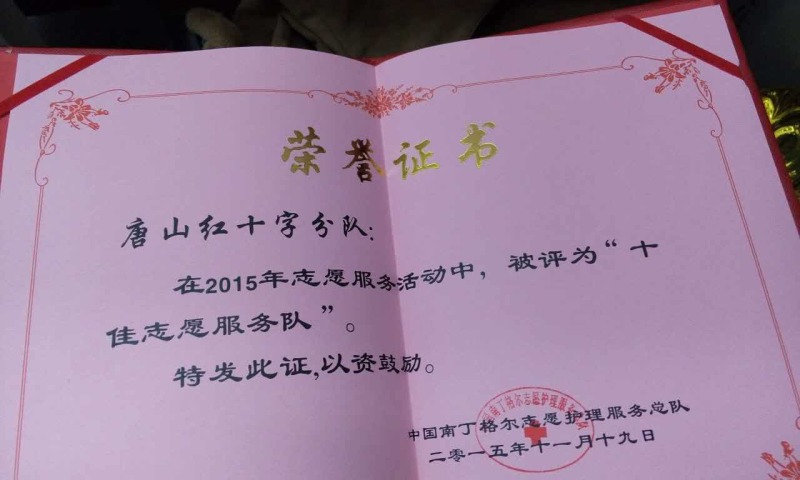 荣誉证书
唐山红十字分队：
在2015年志愿服务活动中，被评为“十
佳志愿服务队”。
特发此证,以资鼓励。
中国南丁格尔志愿护理服务总队
二零一五年十一月十九日